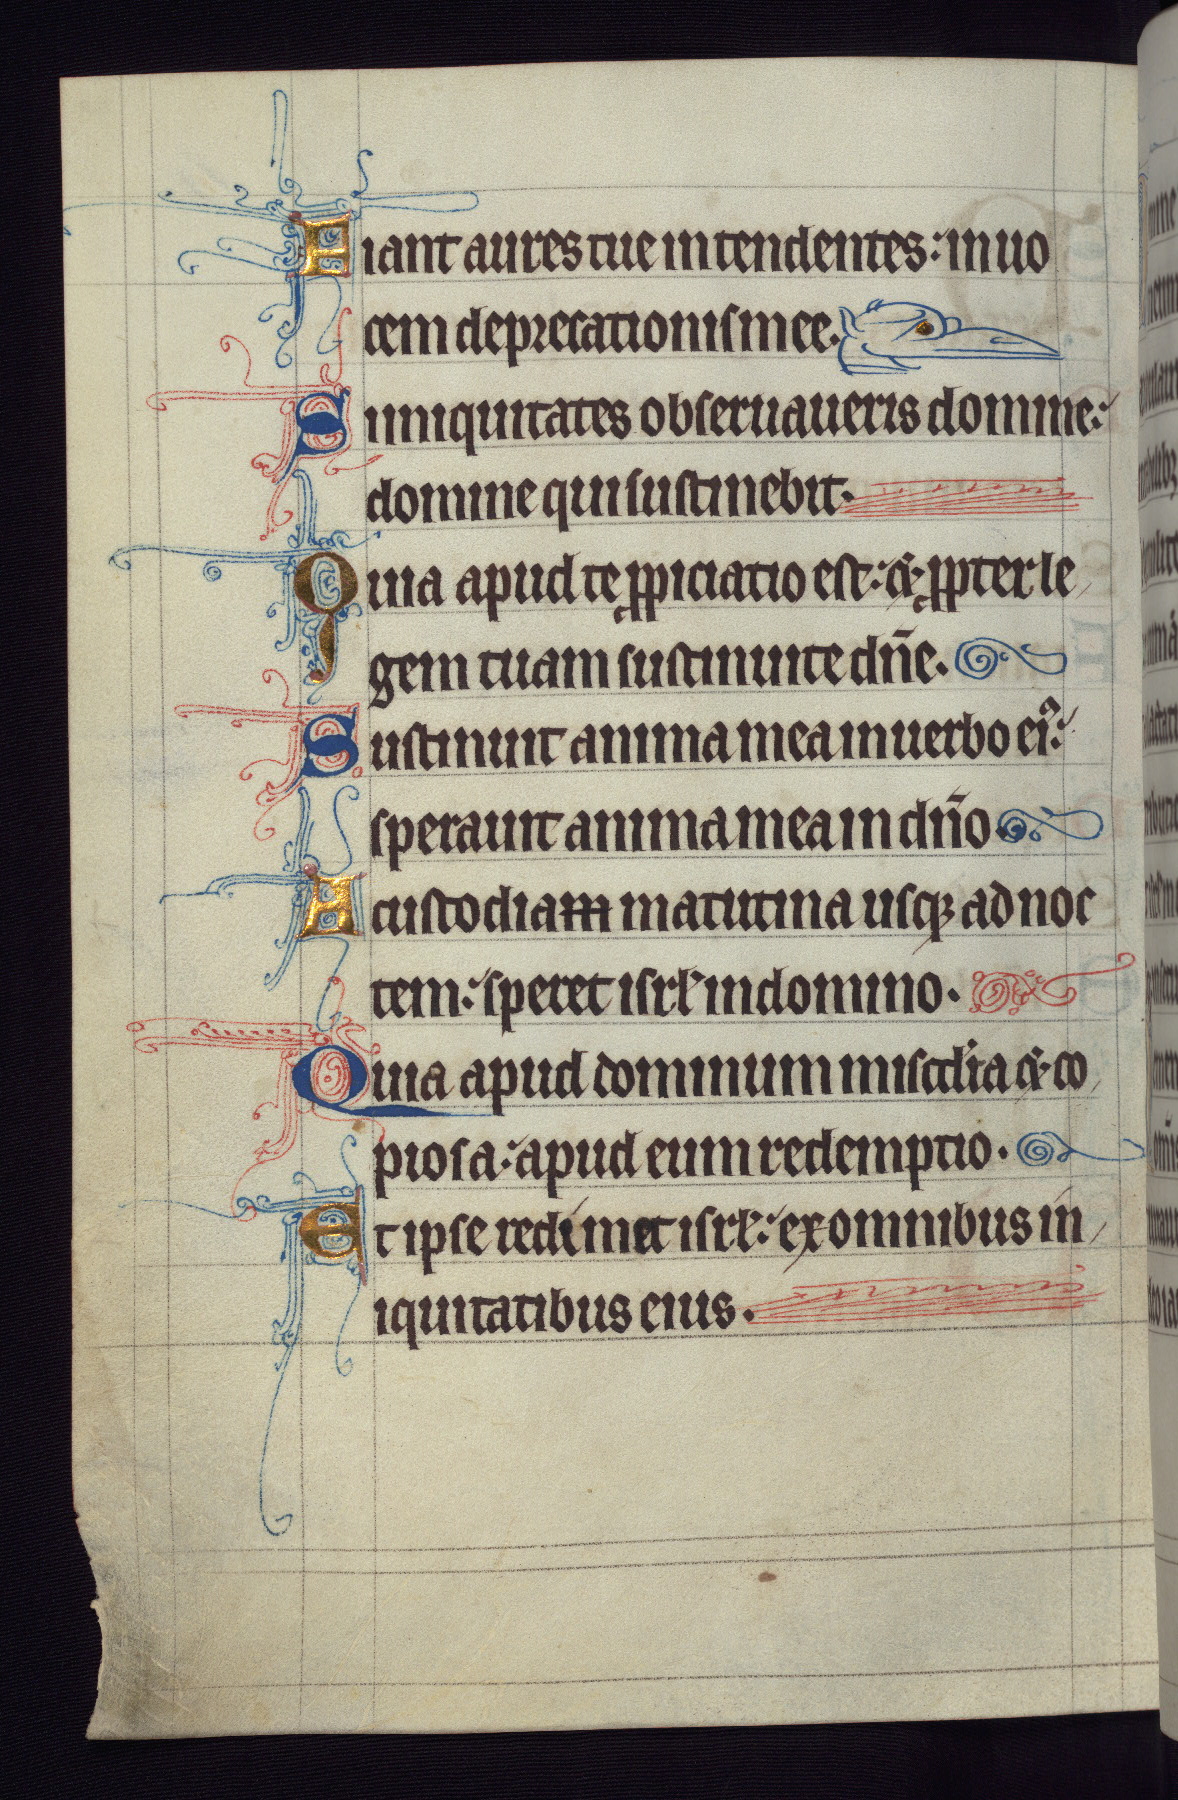 Fiant aures tue intendentes: in uo
cem deprecationis mee.
Si iniquitates obseruaueris domine:
domine quis sustinebit.
Quia apud te ꝓpiciatio est: & ꝓpter le
gem tuam sustinui te dñe.
Sustinuit anima mea in uerbo eiꝰ:
sperauit anima mea in dño
A custodiam matutina usqꝫ ad noc
tem: speret isrl̓ in domino.
Quia apud dominum miscd̓ia & co
piosa: apud eum redemptio.
Et ipse redimet isrl̓: ex omnibus in
iquitatibus eius.